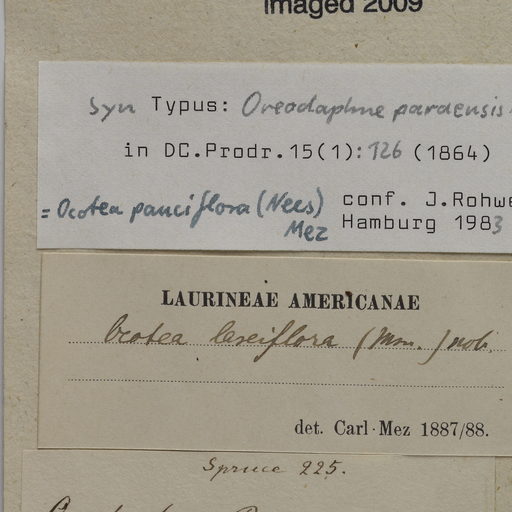 Imaged 2009
Syn Typus: Oreodaphne paraensis
in DC.Prodr.15(1):126 (1864)
=Ocotea pauciflora (Nees) conf. J.Rohwe
Mez Hamburg 1983
LAURINEAE AMERICANAE
Ocotea laxiflora (Msn.) nob.
det. Carl Mez 1887/88.
Spruce 225.